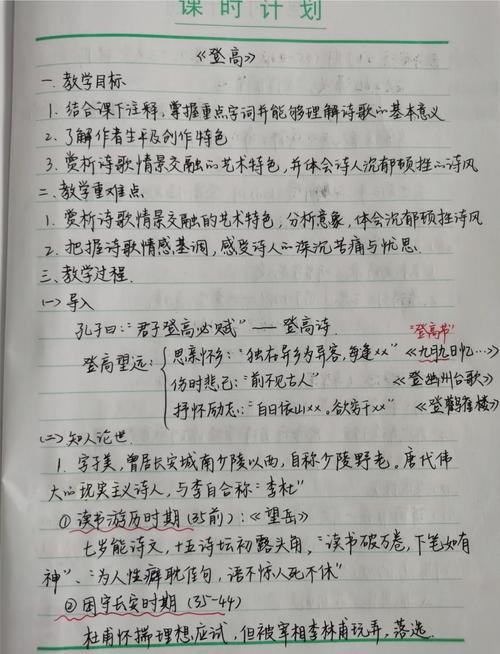 课时计划
《登高》
一.教学目标
1.结合课下注释,掌握重点字词并能够理解诗歌的基本意义
2.了解作者生平及创作特色
3.赏析诗歌情景交融的艺术特色,并体会诗人沉郁顿挫的诗风
二.教学重难点
1.赏析诗歌情景交融的艺术特色,分析意象,体会沉郁顿挫诗风
2.把握诗歌情感基调,感受诗人的深沉苦痛与忧思.
三.教学过程.
(一)导入
孔子曰:"君子登高必赋"——登高诗.
"登高节"
登高望远:
思亲怀乡:"独在异乡为异客,每逢xx"《九月九日忆…》
伤时悲己:"前不见古人"《登幽州台歌》
抒怀励志:"白日依山xx。欲穷千xx"《登鹳雀楼》
(二)知人论世.
1.字子美,曾居长安城南少陵以西,自称少陵野老。唐代伟
大的现实主义诗人,与李白合称"李杜"
①读书游历时期(35前):《望岳》
七岁能诗文,十五诗坛初露头角,"读书破万卷,下笔如有
神"、"为人性癖耽佳句,语不惊人死不休"
②困守长安时期(35-44)
杜甫怀揣理想应试,但被宰相李林甫玩弄,落选.